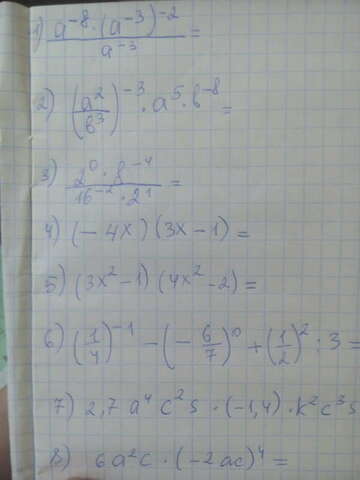 1) \frac{a^{-8} \cdot (a^{-3})^{-2}}{a^{-3}} =
2) \left(\frac{a^2}{b^3}\right)^{-3} \cdot a^5 \cdot b^{-8} =
3) \frac{2^0 \cdot 8^{-4}}{16^{-2} \cdot 2^1} =
4) (-4x)(3x-1) =
5) (3x^2-1)(4x^2-2) =
6) \left(\frac{1}{4}\right)^{-1} - \left(-\frac{6}{7}\right)^0 + \left(\frac{1}{2}\right)^2 : 3 =
7) 2,7 a^4 c^2 s \cdot (-1,4) \cdot k^2 c^3 s
8) 6a^2c \cdot (-2ac)^4 =